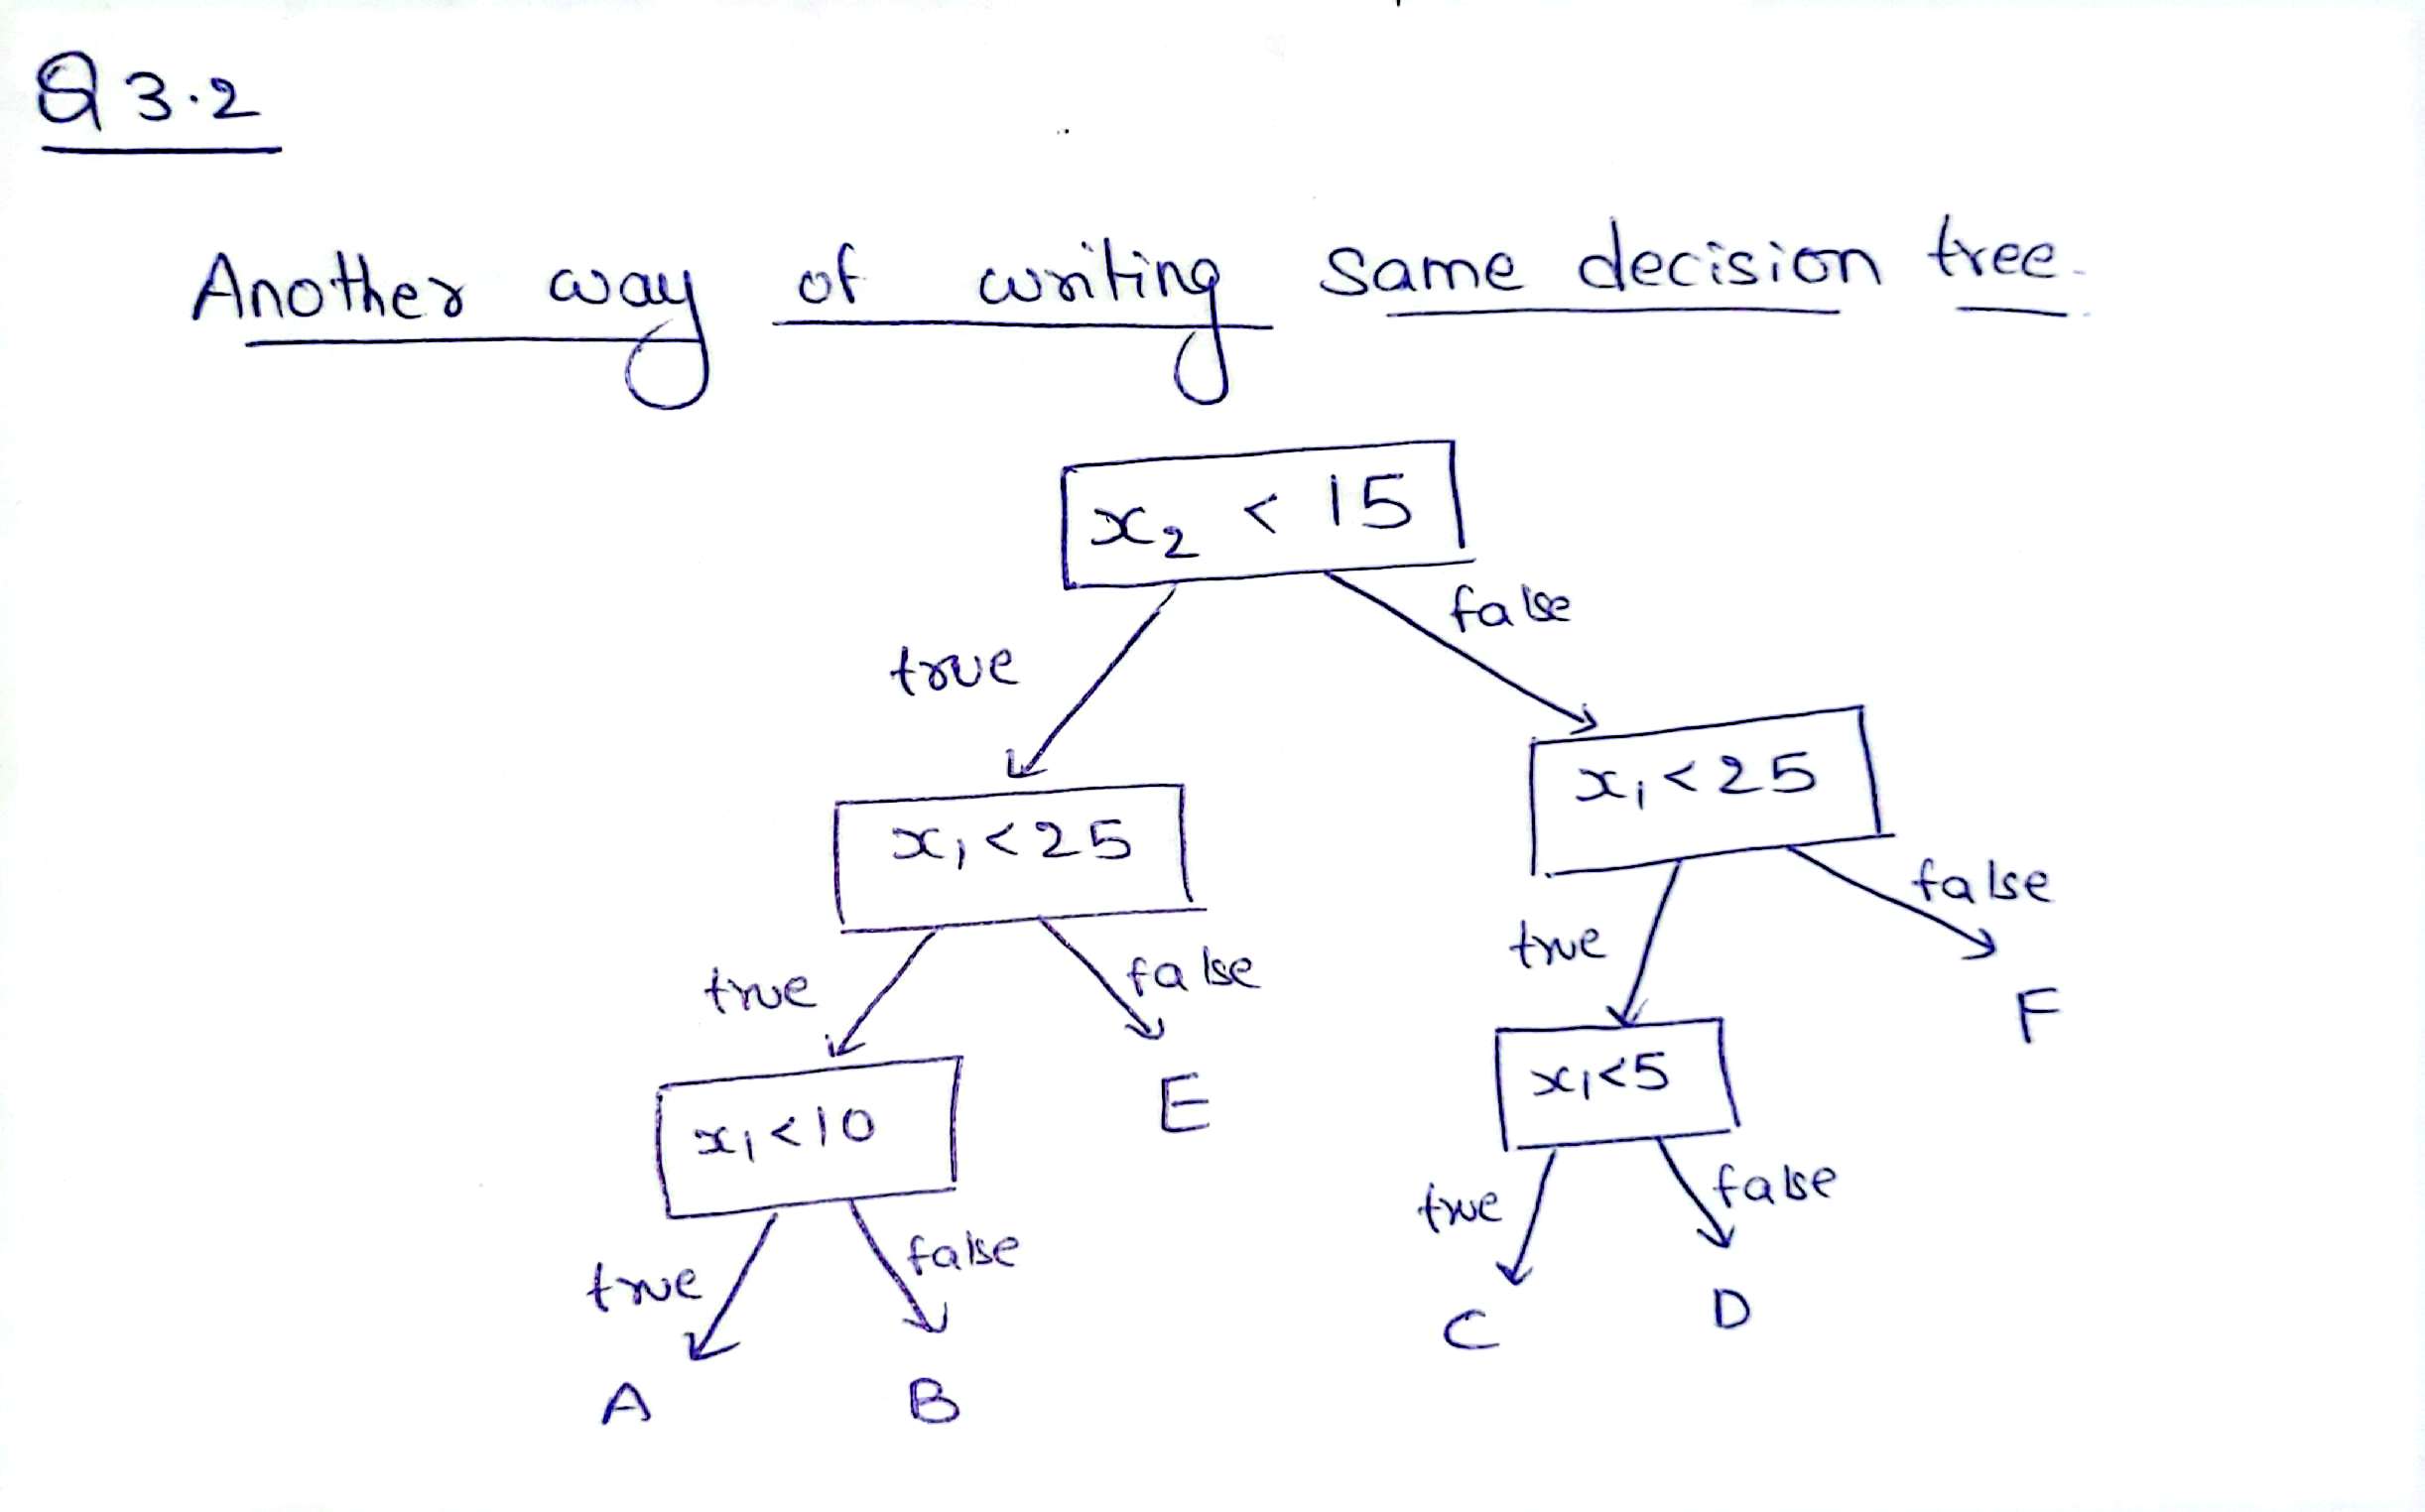 Q 3.2
Another way of writing same decision tree.
x₂ < 15
true false
x₁ < 25
x₁ < 25
true false
true false
x₁ < 10
E
x₁ < 5
F
true false
true false
A B
C D